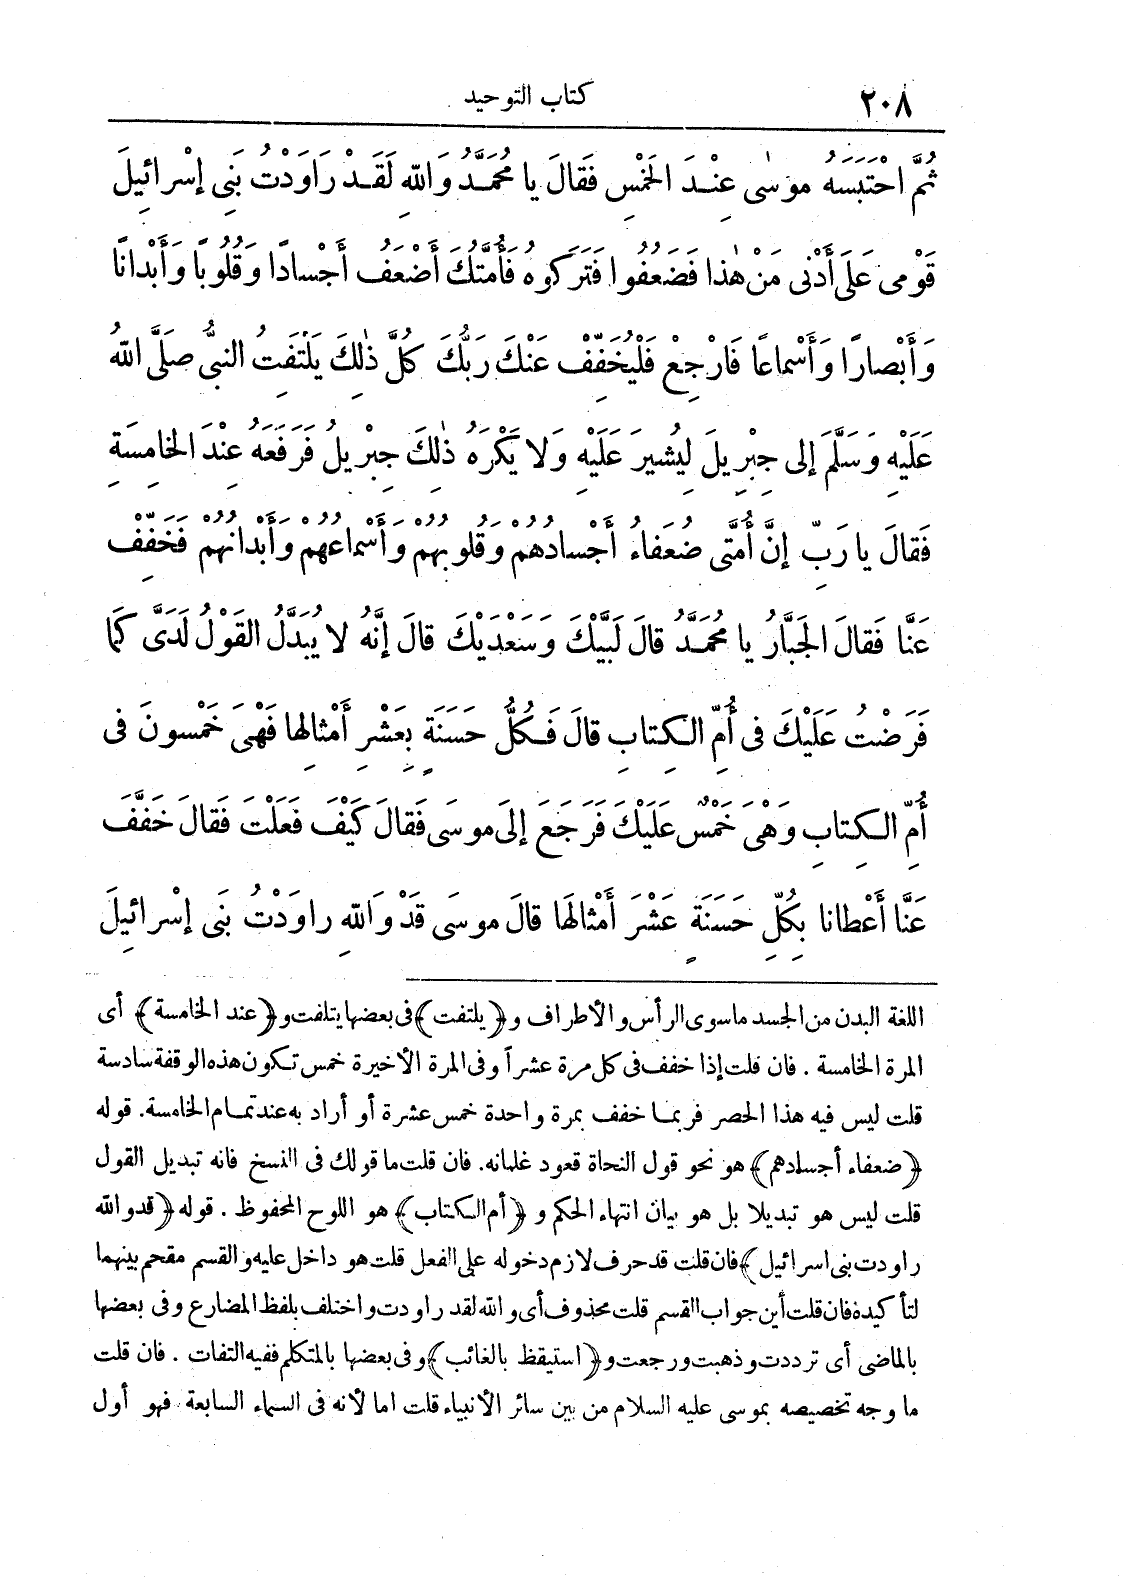 ٢٠٨
كتاب التوحيد
ثُمَّ احْتَبَسَهُ موسٰى عِنْدَ الخَمْسِ فَقالَ يا مُحَمَّدُ وَاللهِ لَقَدْ رَاوَدْتُ بَنِى إسْرائيلَ
قَوْمِى عَلَى أَدْنى مِنْ هٰذا فَضَعُفُوا فَتَرَكُوهُ فَأُمَّتُكَ أَضْعَفُ أَجْسادًا وَقُلُوبًا وَأَبْدانًا
وَأَبْصارًا وَأَسْماعًا فَارْجِعْ فَلْيُخَفِّفْ عَنْكَ رَبُّكَ كُلَّ ذٰلِكَ يَلْتَفِتُ النبىُّ صلَّى اللهُ
عَلَيْهِ وَسَلَّمَ إلى جِبْرِيلَ لِيُشيرَ عَلَيْهِ وَلا يَكْرَهُ ذٰلِكَ جِبْرِيلُ فَرَفَعَهُ عِنْدَ الخامِسَةِ
فَقالَ يا رَبِّ إنَّ أُمَّتى ضُعَفاءُ أَجْسادُهُمْ وَقُلوبُهُمْ وَأَسْماعُهُمْ وَأَبْدانُهُمْ فَخَفِّفْ
عَنَّا فَقالَ الجَبَّارُ يا مُحَمَّدُ قالَ لَبَّيْكَ وَسَعْدَيْكَ قالَ إنَّهُ لا يُبَدَّلُ القَوْلُ لَدَىَّ كَمَا
فَرَضْتُ عَلَيْكَ فى أُمِّ الكِتابِ قالَ فَكُلُّ حَسَنَةٍ بِعَشْرِ أَمْثالِها فَهْىَ خَمْسونَ فى
أُمِّ الكِتابِ وَهْىَ خَمْسٌ عَلَيْكَ فَرَجَعَ إلَى موسَى فَقالَ كَيْفَ فَعَلْتَ فَقالَ خَفَّفَ
عَنَّا أَعْطانا بِكُلِّ حَسَنَةٍ عَشْرَ أَمْثالِهَا قالَ موسَى قَدْ وَاللهِ راوَدْتُ بَنِى إسْرائيلَ
اللغة البدن من الجسد ماسوى الرأس والأطراف و ﴿يلتفت﴾ فى بعضها يتلفت و ﴿عند الخامسة﴾ أى
المرة الخامسة . فان قلت إذا خفف فى كل مرة عشراً وفى المرة الأخيرة خمس تكون هذه الوقفة سادسة
قلت ليس فيه هذا الحصر فربما خفف بمرة واحدة خمس عشرة أو أراد به عند تمام الخامسة. قوله
﴿ضعفاء أجسادهم﴾ هو نحو قول النحاة قعود غلمانه. فان قلت ما قولك فى النسخ فانه تبديل القول
قلت ليس هو تبديلا بل هو بيان انتهاء الحكم و ﴿أم الكتاب﴾ هو اللوح المحفوظ . قوله ﴿قد والله
راودت بنى اسرائيل﴾ فان قلت قد حرف لازم دخوله على الفعل قلت هو داخل عليه والقسم مقحم بينهما
لتأكيده فان قلت أين جواب القسم قلت محذوف أى والله لقد راودت واختلف بلفظ المضارع وفى بعضها
بالماضى أى ترددت وذهبت ورجعت و ﴿استيقظ بالغائب﴾ وفى بعضها بالمتكلم ففيه التفات . فان قلت
ما وجه تخصيصه بموسى عليه السلام من بين سائر الأنبياء قلت اما لأنه فى السماء السابعة فهو أول